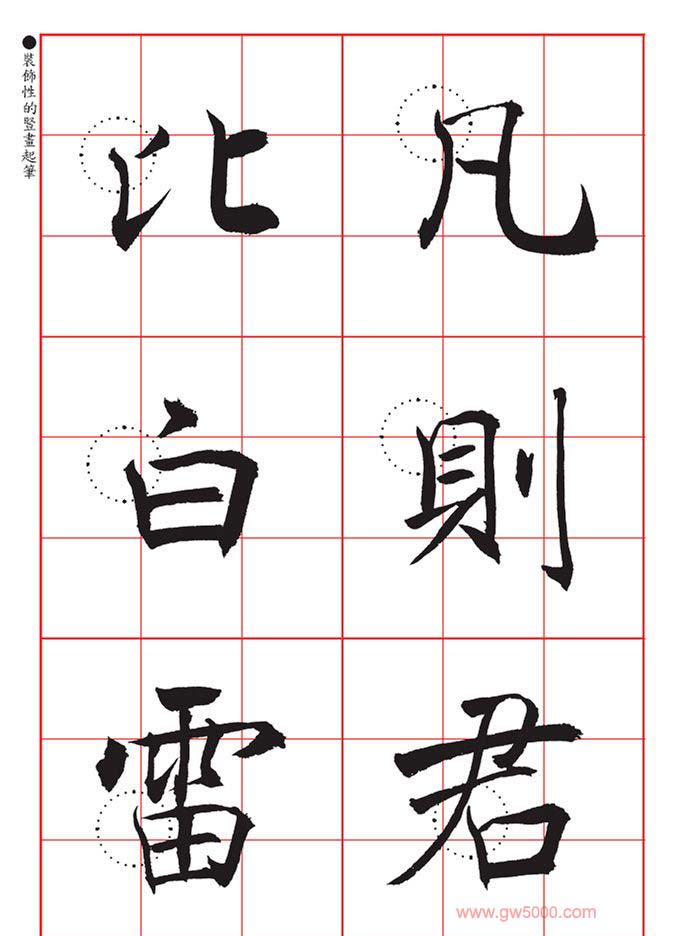 ●裝飾性的豎畫起筆
凡則君
比白雷
www.gw5000.com